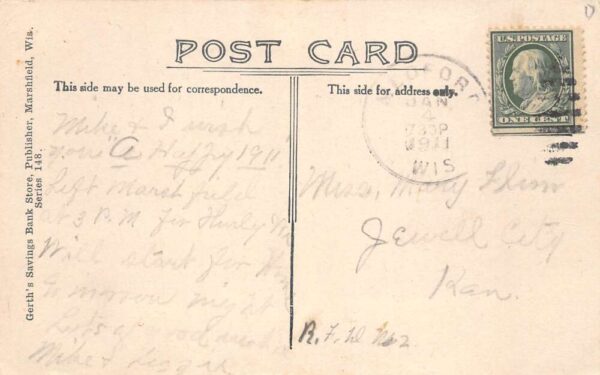 POST CARD
This side may be used for correspondence.
This side for address only.
Gerth's Savings Bank Store, Publisher, Marshfield, Wis.
Series 148.
U.S. POSTAGE
ONE CENT
MEDFORD
JAN
4
1911
WIS
Mike & I wish
you A Happy 1911
Left Marshfield
at 3 P.M for Hurly
Will start for
to morrow night
Lots of good wishes
Mike &
Miss. Mary Flinn
Jewell City
Kan.
R. F. D No 2